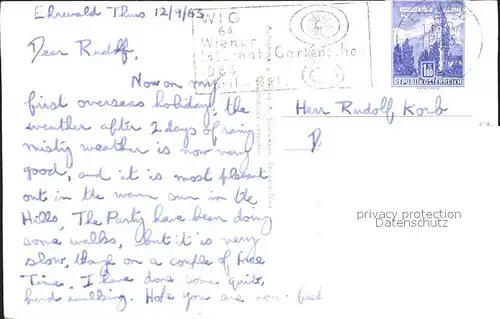 Ehrwald Thurs 12/9/63
WIG
64
Wiener
REPUBLIK ÖSTERREICH
Dear Rudolf,
Now on my
first overseas holiday, the
weather after 2 days of rain,
misty weather is now very
good, and it is most pleasant
out in the warm sun in the
Hills. The Party have been doing
some walks, but it is very
slow, though on a couple of free
Time. I have done some quite
hard walking. Hope you are
Herr Rudolf Korb
privacy protection
Datenschutz